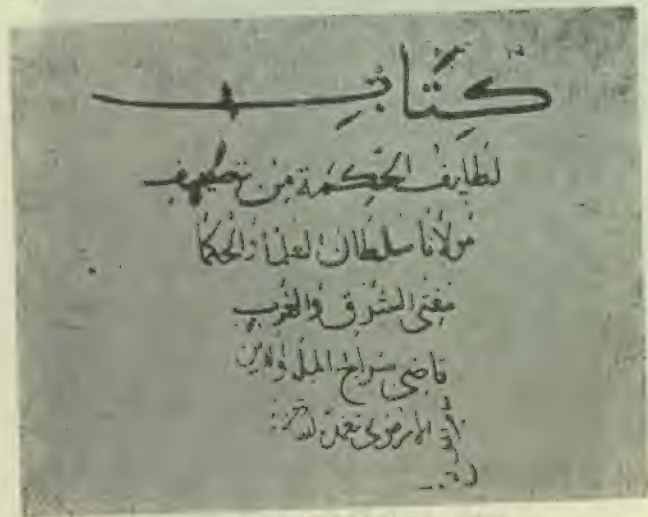 كتاب
لطايف الحكمة من تصنيف
مولانا سلطان العلماء والحكما
مفتى الشرق والغرب
قاضى سراج الملة والدين
الارموى تغمده